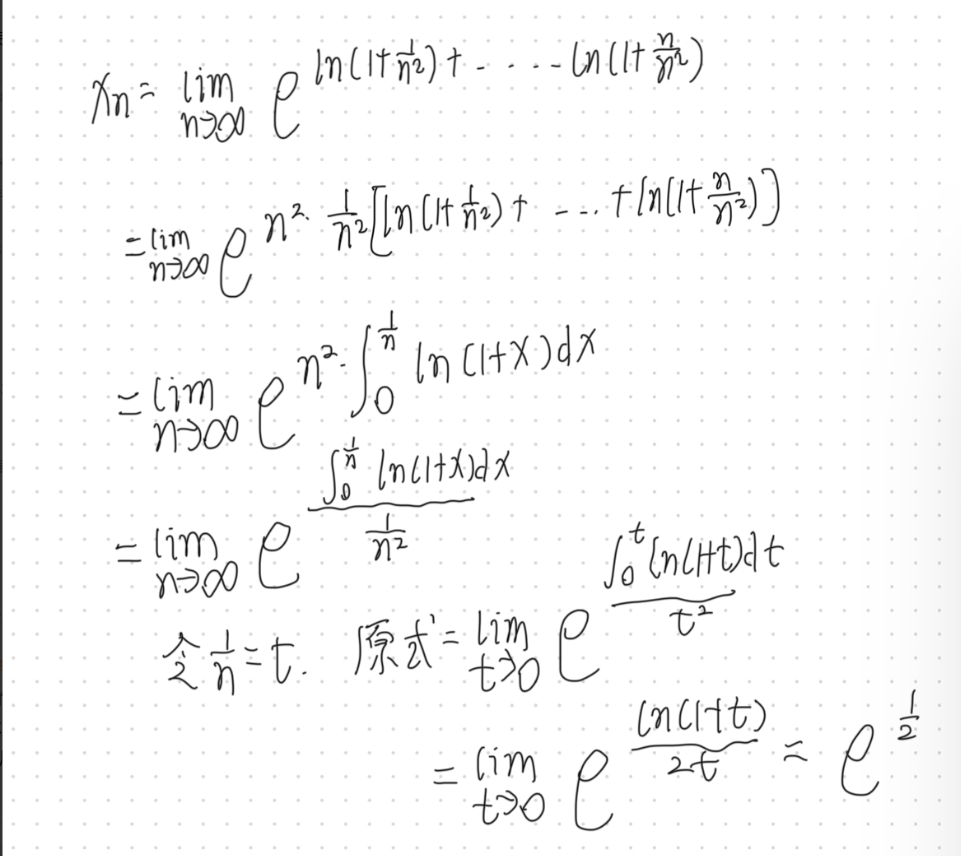 Xn = lim n→∞ e^{ln(1+1/n²)+ - · · · - ln(1+n/n²)}
= lim n→∞ e^{n²· 1/n² [ln(1+1/n²)+ --... +ln(1+n/n²)]}
= lim n→∞ e^{n²· ∫₀^{1/n} ln(1+x)dx}
= lim n→∞ e^{∫₀^{1/n} ln(1+x)dx / (1/n²)}
令 1/n = t. 原式 = lim t→0 e^{∫₀^t ln(1+t)dt / t²}
= lim t→0 e^{ln(1+t) / 2t} = e^{1/2}